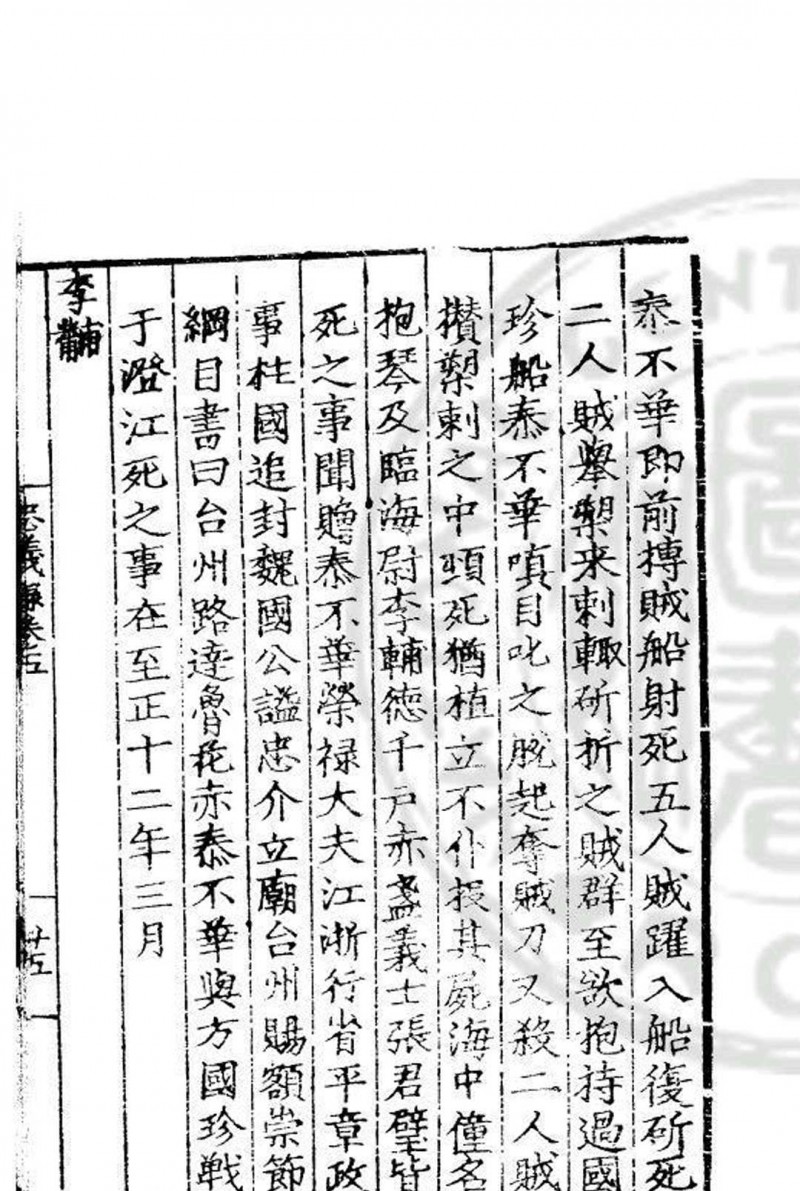 泰不華即前搏賊船射死五人賊躍入船復斫死
二人賊舉槊来刺輙斫折之賊群至欲抱持過國
珍船泰不華嗔目叱之脫起奪賊刀又殺二人賊
攢槊刺之中頭死猶植立不仆投其屍海中僮名
抱琴及臨海尉李輔德千户赤盞義士張君璧皆
死之事聞贈泰不華榮禄大夫江浙行省平章政
事柱國追封魏國公謚忠介立廟台州賜額崇節
綱目書曰台州路逹魯花赤泰不華與方國珍戦
于澄江死之事在至正十二年三月
李黼
忠義録卷五
廿五